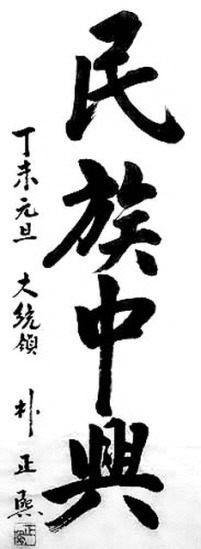 民族中興
丁未元旦 大統領 朴正熙